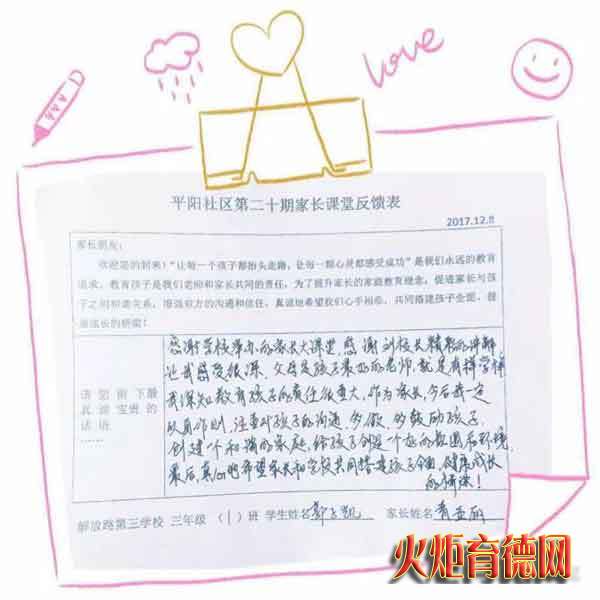 love
平阳社区第二十期家长课堂反馈表
2017.12.8
家长朋友：
欢迎您的到来！“让每一个孩子都抬头走路，让每一颗心灵都感受成功”是我们永远的教育
追求。教育孩子是我们老师和家长共同的责任，为了提升家长的家庭教育理念，促进家长与孩
子之间和谐关系，增强双方的沟通和信任，真诚地希望我们心手相牵，共同搭建孩子全面、健
康成长的桥梁！
请您留下最
真诚宝贵的
话语
……
感谢学校举办的家长大课堂，感谢刘校长精彩的讲解
让我感受很深，父母是孩子最好的老师，就是有样学样
我深知教育孩子的责任很重大，作为家长，今后我一定
以身作则，注重对孩子的沟通，多欣、多鼓励孩子，
创建一个和谐的家庭，给孩子创造一个好的氛围后环境
最后，真心地希望家长和学校共同搭建孩子全面、健康成长
的桥梁！
解放路第三学校 三年级（1）班 学生姓名 家长姓名
火炬育德网